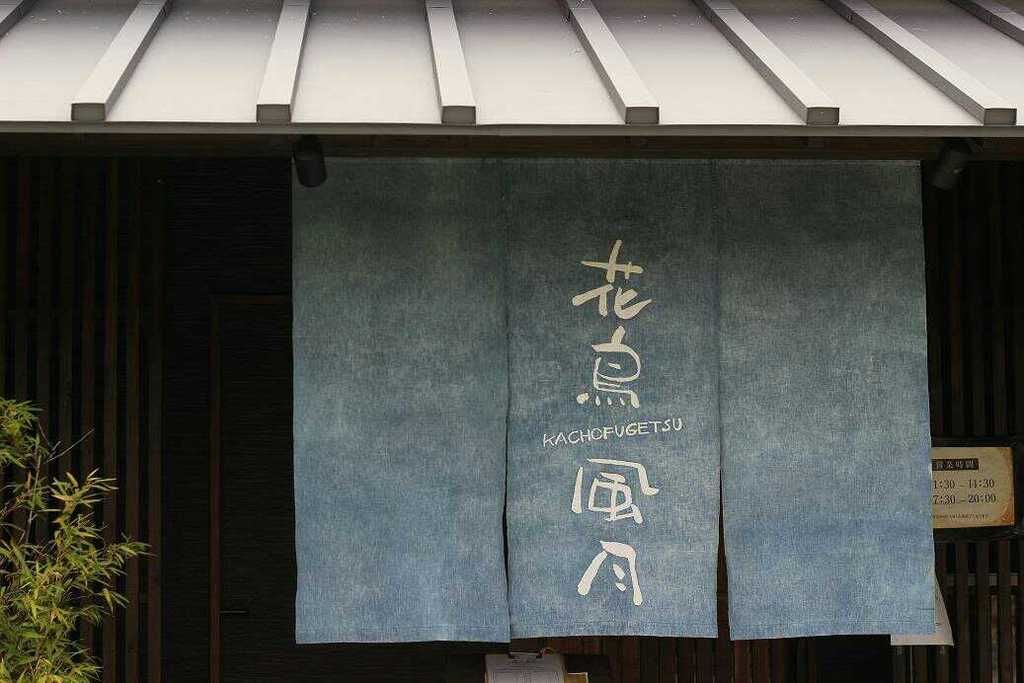 花鳥
KACHOFUGETSU
風月
営業時間
1:30 – 14:30
7:30 – 20:00